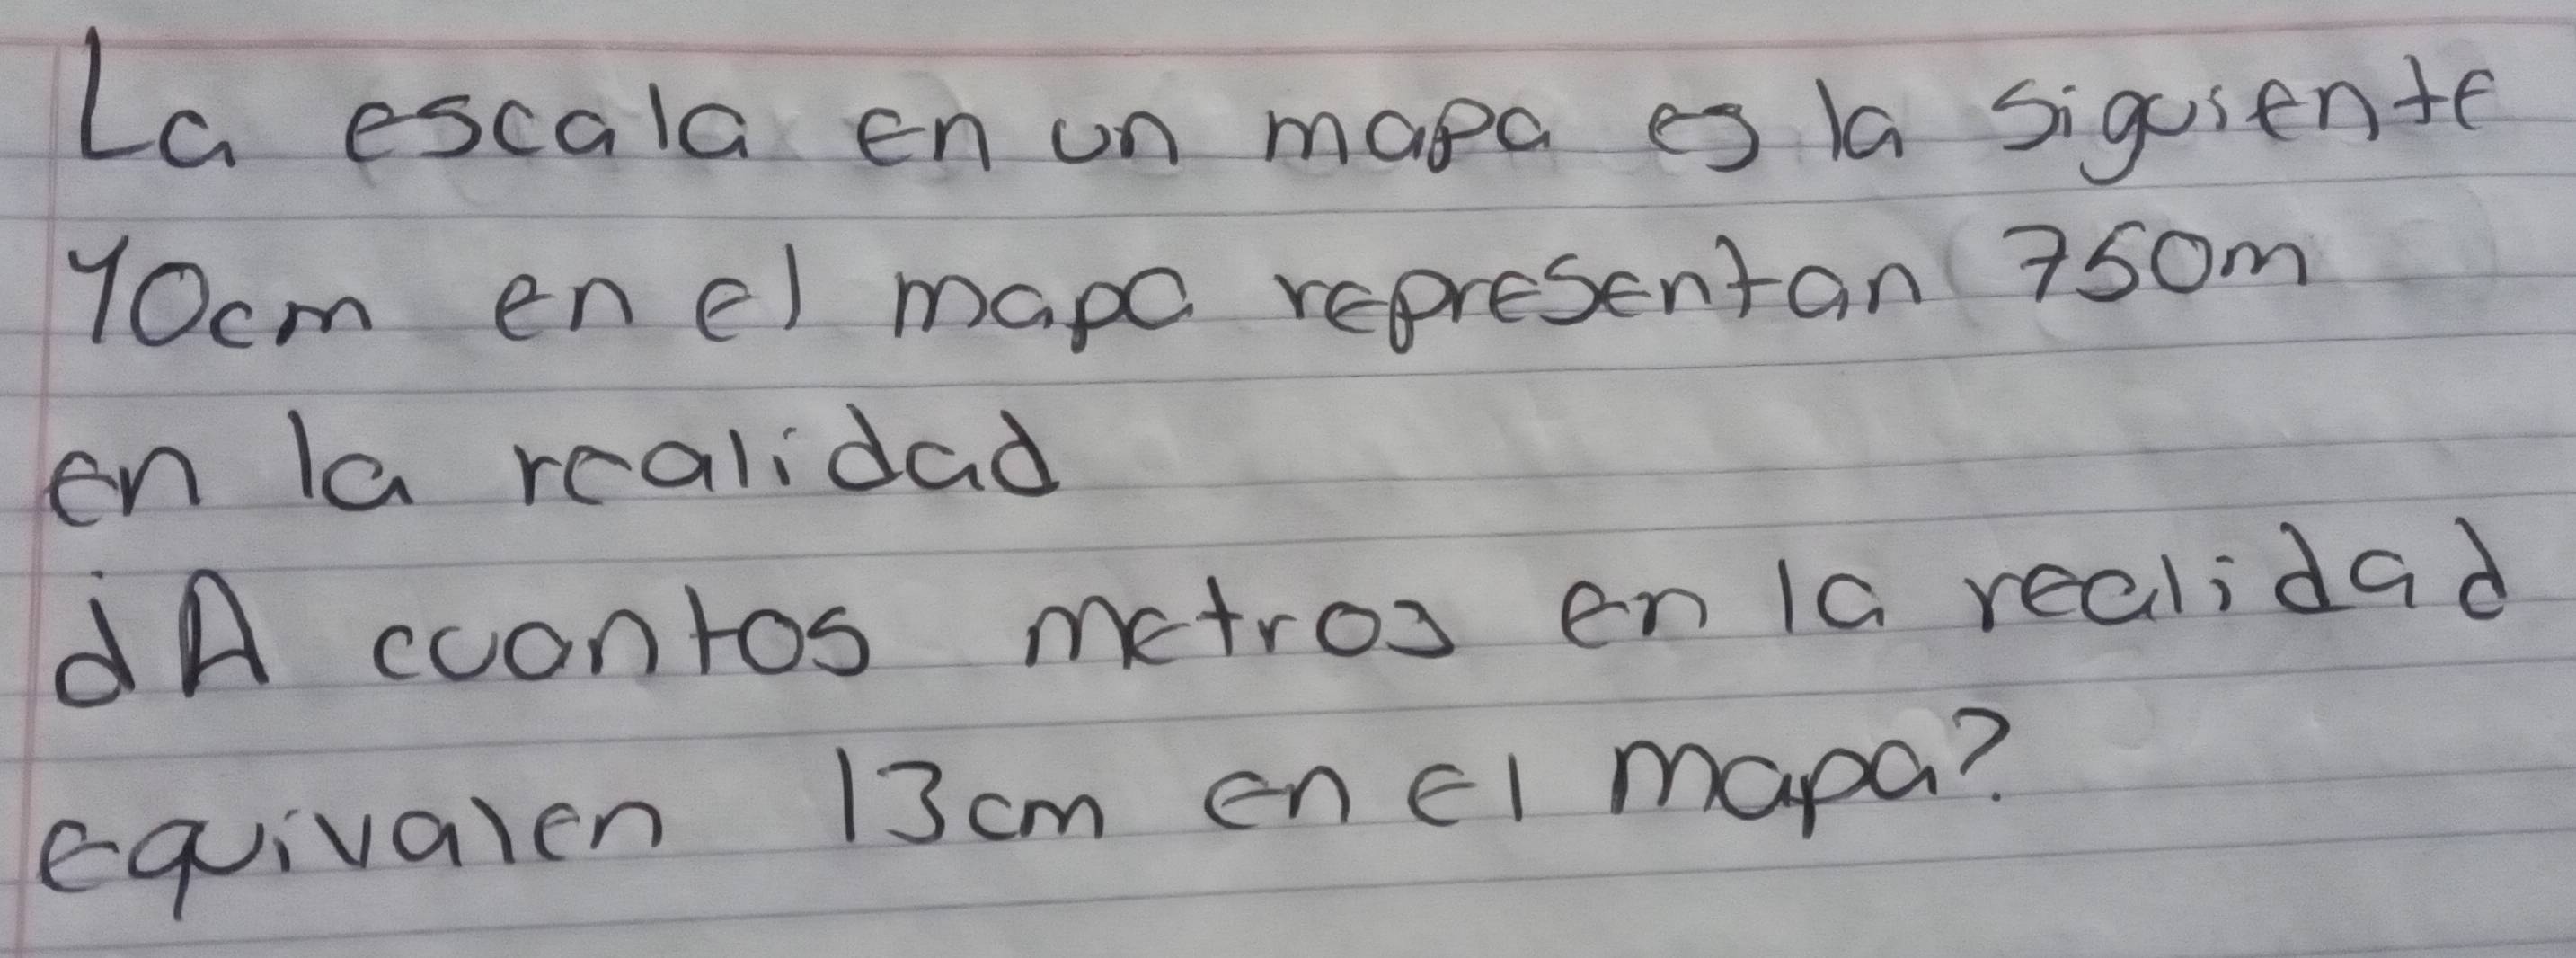 La escala en un mapa es la siguiente
10cm en el mapa representan 750m
en la realidad
¿A cuantos metros en la realidad
equivalen 13cm en el mapa?